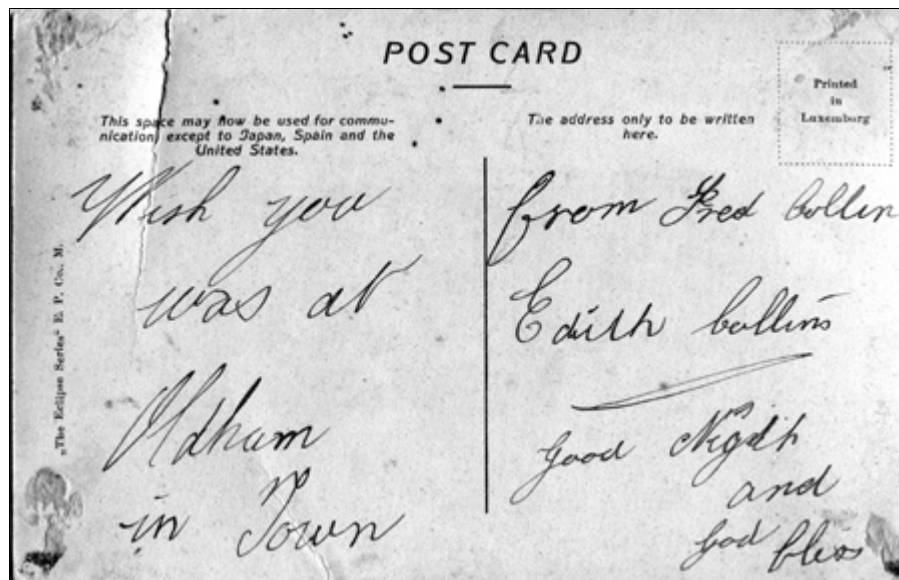 POST CARD
Printed
in
Luxemburg
This space may now be used for commu-
nication, except to Japan, Spain and the
United States.
The address only to be written
here.
„The Eclipse Series“ E. P. Co., M.
Wish you
was at
Oldham
in Town
from Fred Collin
Edith Collins
Good Nigdth
and
God bless